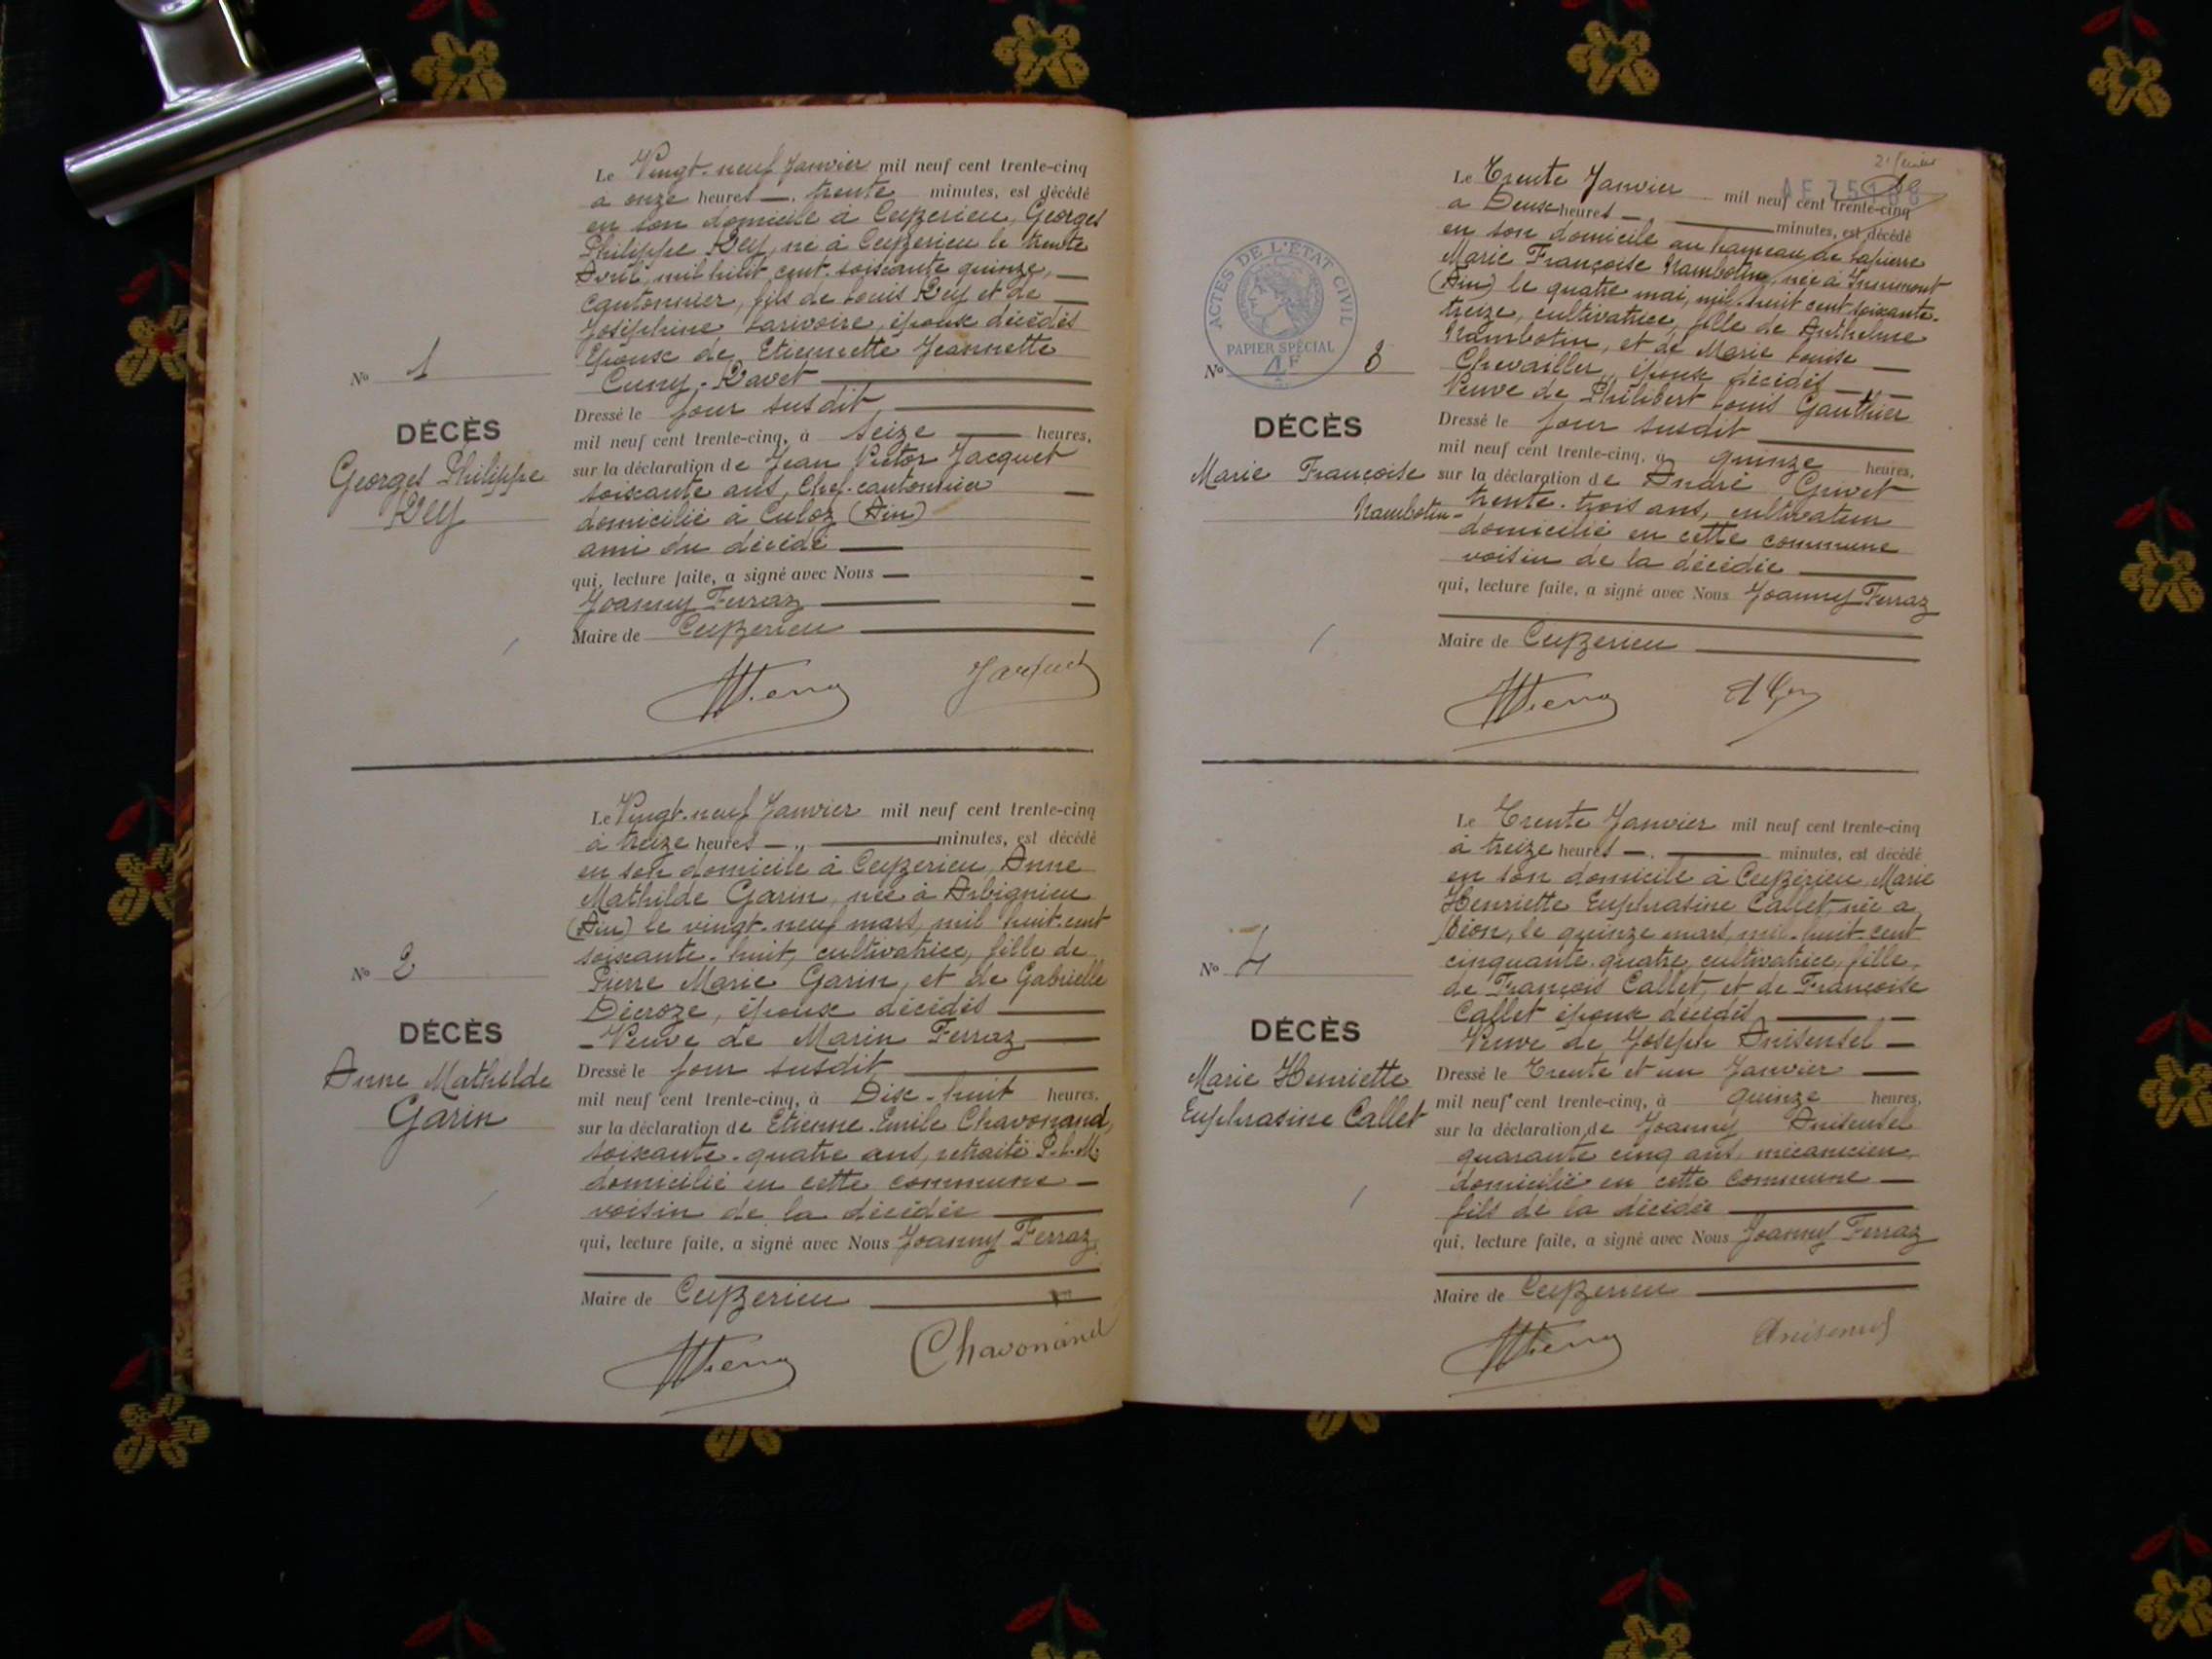 Le Vingt-neuf Janvier mil neuf cent trente-cinq
à onze heures —. trente minutes, est décédé
en son domicile à Ceyzerieu, Georges
Philippe Rey, né à Ceyzerieu le trente
Avril, mil huit cent. soixante quinze, —
cantonnier, fils de Louis Rey et de —
Joséphine Larivoire, époux décédés
Epoux de Etiennette Jeannette
Cuny-Ravet —
N° 1
DÉCÈS
Georges Philippe
Rey
Dressé le jour susdit, —
mil neuf cent trente-cinq, à seize — heures,
sur la déclaration de Jean Victor Jacquet
soixante ans, Chef-cantonnier —
domicilié à Culoz (Ain)
ami du décédé —
qui, lecture faite, a signé avec Nous —
Joanny Ferraz —
Maire de Ceyzerieu —
Jacquet
Le Vingt-neuf Janvier mil neuf cent trente-cinq
à treize heures — " — minutes, est décédé
en son domicile à Ceyzerieu, Anne
Mathilde Garin, née à Arbignieu
(Ain) le vingt-neuf mars, mil huit-cent
soixante-huit, cultivatrice, fille de
Pierre Marie Garin, et de Gabrielle
Décroze, époux décédés —
— Veuve de Marin Ferraz —
N° 2
DÉCÈS
Anne Mathilde
Garin
Dressé le jour susdit —
mil neuf cent trente-cinq, à Dix-huit heures,
sur la déclaration de Etienne-Emile Chavonand,
soixante-quatre ans, retraité P.L.M.
domicilié en cette commune —
voisin de la décédée —
qui, lecture faite, a signé avec Nous Joanny Ferraz
Maire de Ceyzerieu —
Chavonand
2 Février
Le Trente Janvier mil neuf cent trente-cinq
à Deux heures — . — minutes, est décédé
en son domicile au hameau de Lapierre
Marie Françoise Nambotin, née à
(Ain) le quatre mai, mil-huit cent soixante-
treize, cultivatrice, fille de Anthelme
Nambotin, et de Marie Louise —
Chevailler, époux décédés —
Veuve de Philibert Louis Gauthier
ACTES DE L'ÉTAT CIVIL
PAPIER SPÉCIAL
4F
N° 3
DÉCÈS
Marie Françoise
Nambotin
Dressé le jour susdit —
mil neuf cent trente-cinq, à quinze heures,
sur la déclaration de André Grivet
trente-trois ans, cultivateur
domicilié en cette commune
voisin de la décédée —
qui, lecture faite, a signé avec Nous Joanny Ferraz
Maire de Ceyzerieu —
Le Trente Janvier mil neuf cent trente-cinq
à treize heures — . — minutes, est décédé
en son domicile à Ceyzerieu, Marie
Henriette Euphrasine Callet, née à
Béon, le quinze mars, mil-huit-cent
cinquante-quatre, cultivatrice, fille,
de François Callet, et de Françoise
Callet époux décédés —
Veuve de Joseph Anisensel —
N° 4
DÉCÈS
Marie Henriette
Euphrasine Callet
Dressé le Trente et un Janvier —
mil neuf cent trente-cinq, à quinze heures,
sur la déclaration de Joanny Anisensel
quarante cinq ans, mécanicien,
domicilié en cette Commune —
fils de la décédée —
qui, lecture faite, a signé avec Nous Joanny Ferraz
Maire de Ceyzerieu —
Anisensel